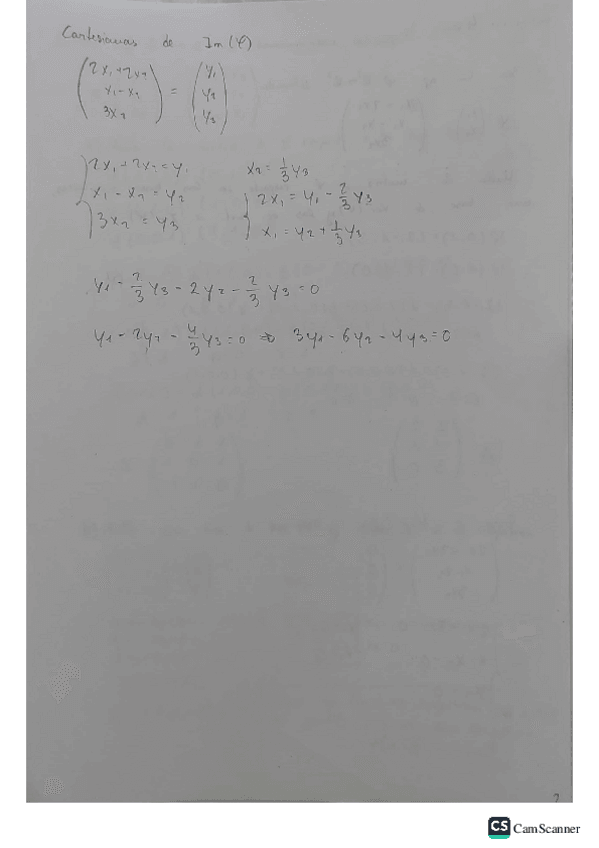 Cartesianas de Im(φ)
(2x₁+2x₂
x₁-x₂
3x₂) = (y₁
y₂
y₃)
{2x₁+2x₂=y₁
x₁-x₂=y₂
3x₂=y₃
x₂=1/3y₃
{2x₁=y₁-2/3y₃
x₁=y₂+1/3y₃
y₁-2/3y₃-2y₂-2/3y₃=0
y₁-2y₂-4/3y₃=0 ⇒ 3y₁-6y₂-4y₃=0
2
CS CamScanner